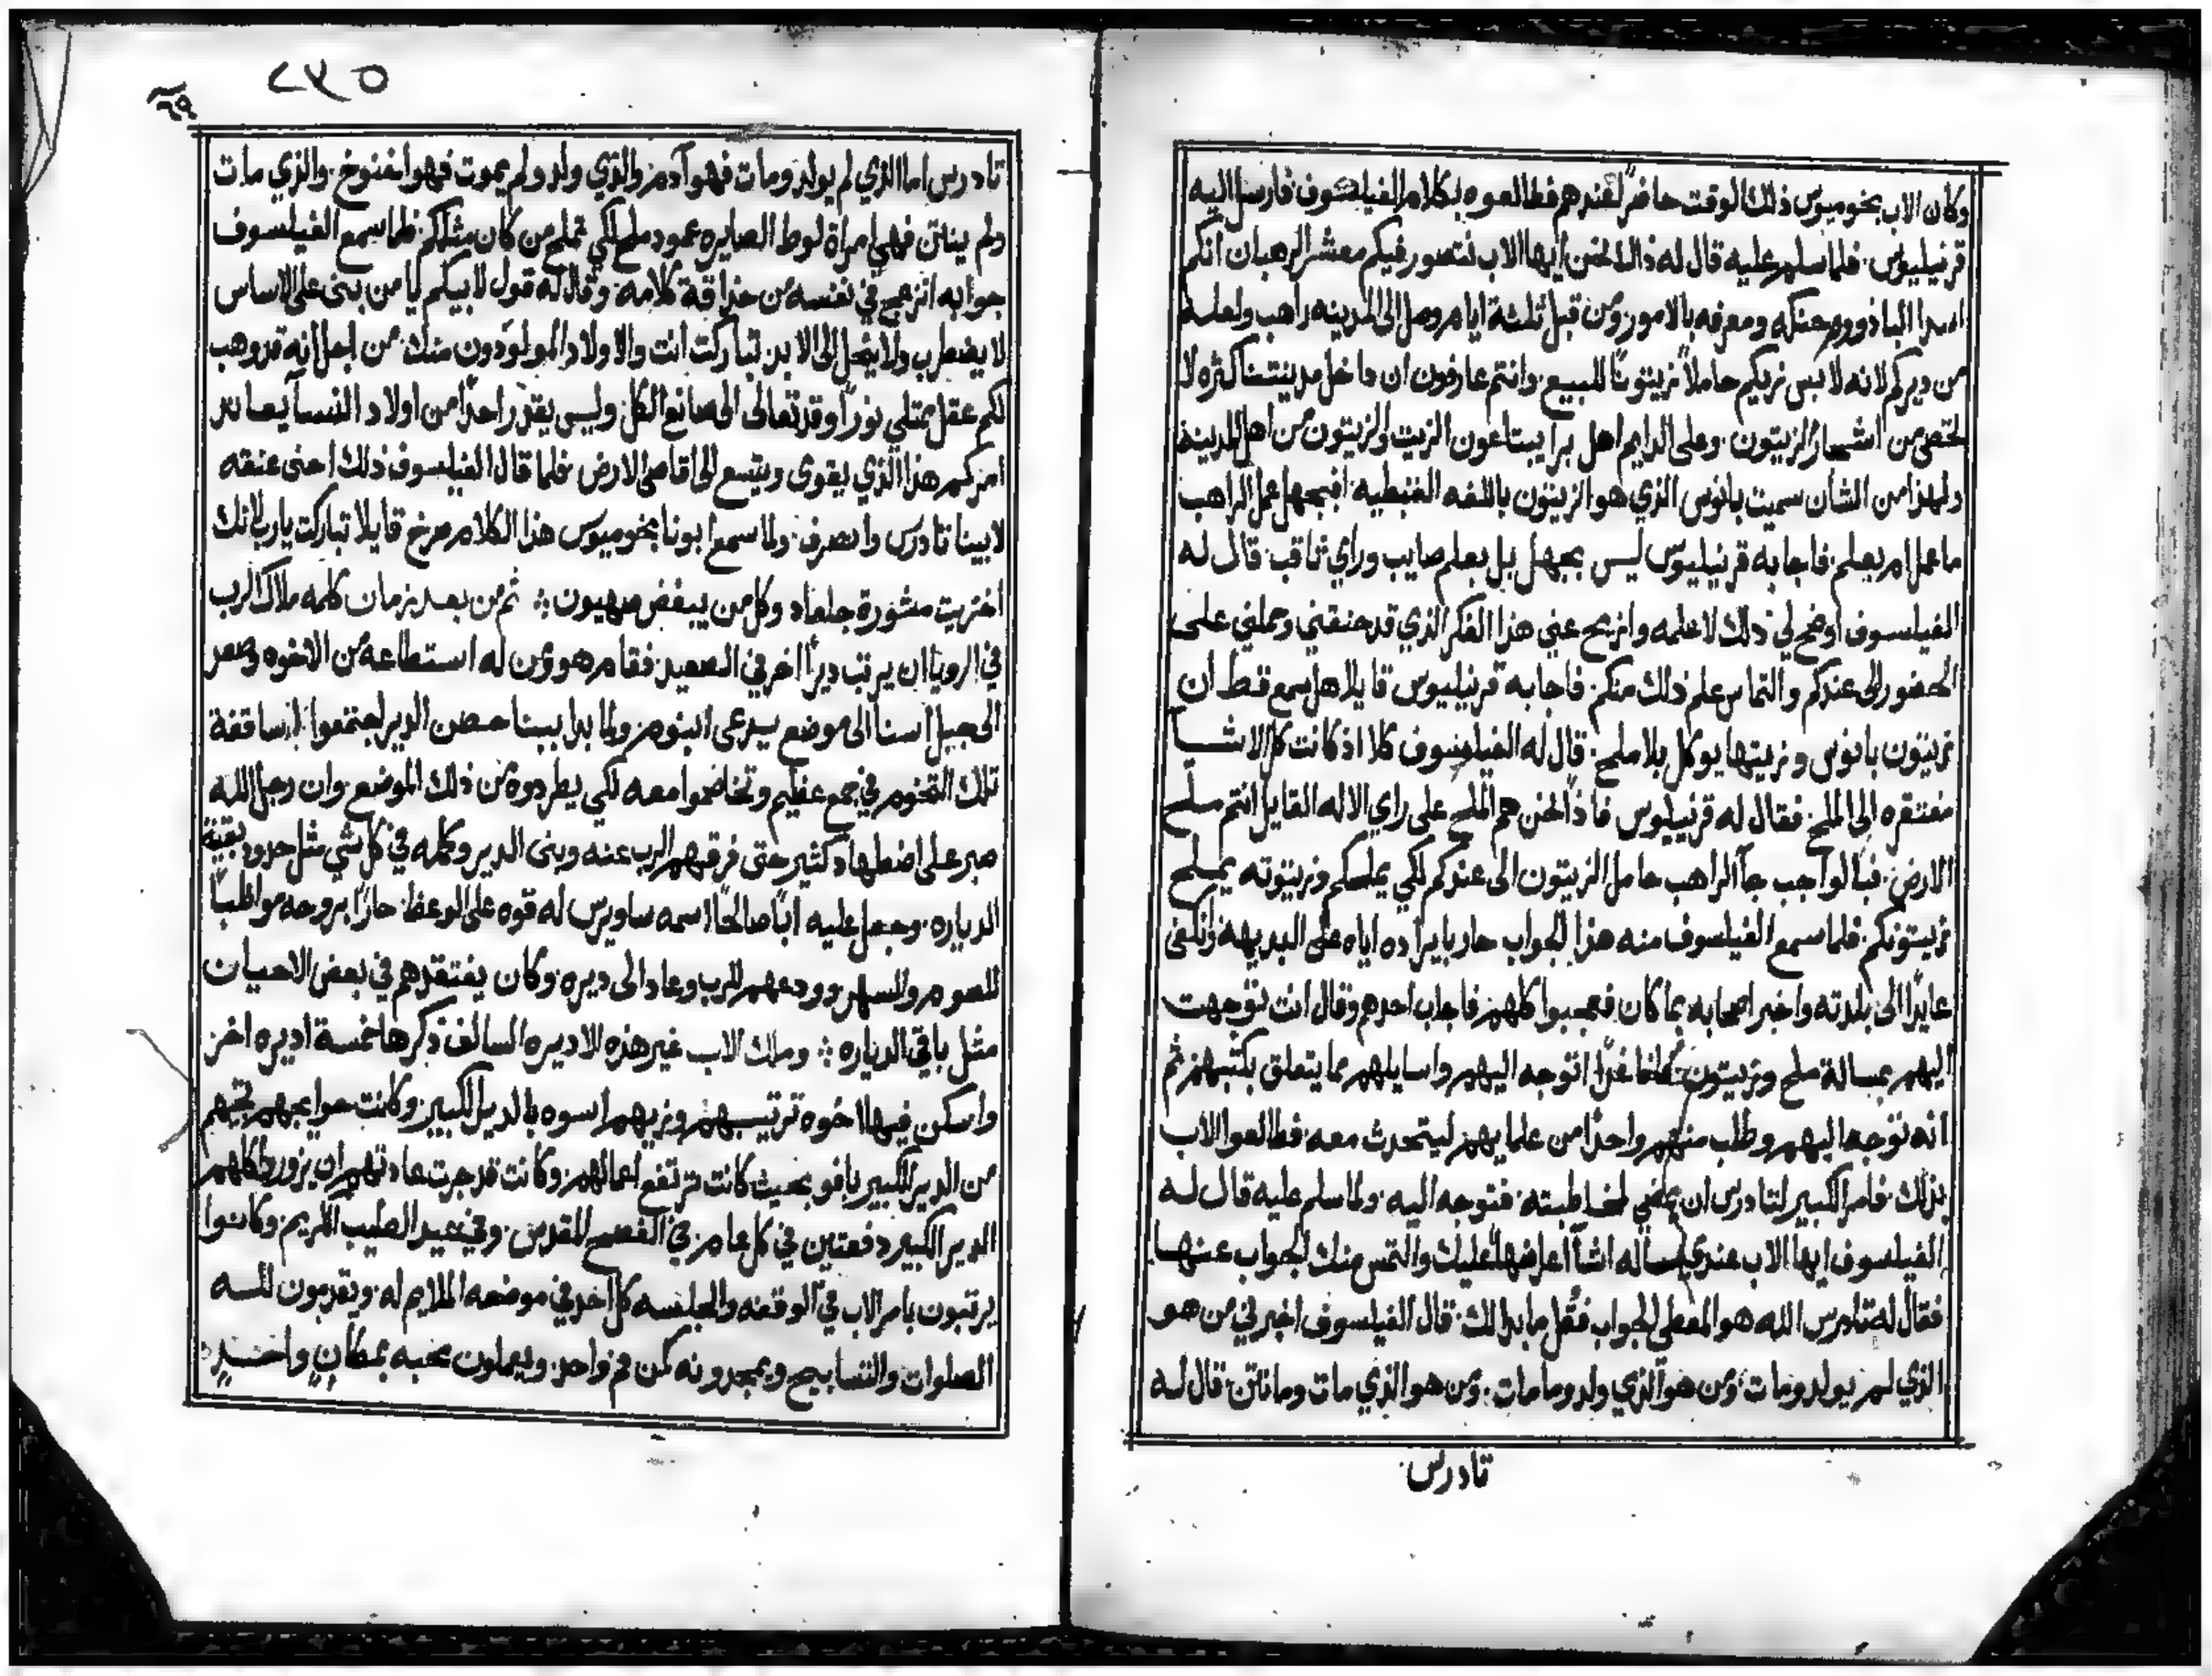 وكان الاب بخوميوس ذلك الوقت حاضرًا عندهم فطالعوه بكلام الفيلسوف فارسل اليه
قرنيليوس. فلما سلم عليه قال له ذاك نحن ايها الاب نتصور فيكم معشر الرهبان انكم
ومعرفه بالامور ومن قبل ثلثة ايام وصل الى المدينه راهب ولعله
من ديركم لانه لابس زيكم حاملاً زيتونًا للبيع. وانتم عارفون ان داخل مدينتنا كثره لا
تحتصى من اشجار الزيتون. وعلى الدايم اهل برا يبتاعون الزيت والزيتون من اهل المدينة
ولهذا من الشان سميت بانوس الذي هو الزيتون باللغه القبطيه. افبجهل عمل الراهب
ما عمل ام بعلم. فاجابه قرنيليوس ليس بجهل بل بعلم صايب وراي ثاقب. قال له
الفيلسوف اوضح لي ذلك لاعلمه وازيح عني هذا الفكر الذي قد حنقني وحملني على
الحضور الى عندكم والتماس علم ذلك منكم. فاجابه قرنيليوس قايلا هل سمع قط ان
زيتون بانوس وزيتها يوكل بلا ملح. قال له الفيلسوف كلا اذ كانت كل الاشيا
مفتقره الى الملح. فقال له قرنيليوس فاذًا نحن هم الملح على راي الاله القايل انتم ملح
الارض. فبالواجب جآ الراهب حامل الزيتون الى عندكم لكي يملحكم وزيتونه يملح
زيتونكم. فلما سمع الفيلسوف منه هذا الجواب حار بايراده اياه على البديهه وانكفى
عايدًا الى بلدته واخبر اصحابه بما كان فعجبوا كلهم. فاجاب احدهم وقال انت توجهت
اليهم بمسالة ملح وزيتون فانا غدًا اتوجه اليهم واسايلهم مما يتعلق بكتبهم. ثم
انه توجه اليهم وطلب منهم واحدًا من علمايهم ليتحدث معه. فطالعوا الاب
بذلك. فامر الكبير لتادرس ان يمضي لمخاطبته. فتوجه اليه. ولما سلم عليه قال له
الفيلسوف ايها الاب عندي مساله اشآ اعرضها عليك والتمس منك الجواب عنها
فقال له تادرس الله هو المعطى الجواب فقل ما بدا لك. قال الفيلسوف اخبرني من هو
الذي لم يولد ومات. ومن هو الذي ولد وما مات. ومن هو الذي مات وما نتن. قال له
تادرس
٢٩
تادرس اما الذي لم يولد ومات فهو آدم. والذي ولد ولم يموت فهو اخنوخ. والذي مات
ولم ينتن فهي امراة لوط الصايره عمود ملح لكي تملح من كان مثلكم. فلما سمع الفيلسوف
جوابه انزعج في نفسه من حذاقة كلامه. وقال له قول لابيكم يا من بنى على الاساس
لا يضطرب ولا ينحل الى الابد. تباركت انت والاولاد المولودون منك. من اجل انه قد وهب
لكم عقل ممتلي نورًا وقد تعالى الى صانع الكل وليس يقدر احدًا من اولاد النسآ يعاند
امركم هذا الذي يقوى ويتسع الى اقاصي الارض. فلما قال الفيلسوف ذلك احنى عنقه
لابينا تادرس وانصرف. ولما سمع ابونا بخوميوس هذا الكلام صرخ قايلا تباركت يا رب لانك
اخزيت مشورة جلعاد وكل من يبغض صهيون. ثم من بعد زمان كلمه ملاك الرب
في الرويا ان يرتب ديرًا اخر في الصعيد. فقام هو ومن له استطاعه من الاخوه وصعد
الى جبل اسنا الى موضع يدعى ابنوم. ولما بدا يبنا حصن الدير اجتمعوا اساقفة
تلك التخوم في جمع عظيم وتخاصموا معه لكي يطردوه من ذلك الموضع. وان رجل الله
صبر على اضطهاد كثير حتى فرقهم الرب عنه وبنى الدير وكمله في كل شي مثل حدود بقية
الدياره. وجعل عليه ابًا صالحًا اسمه ساويرس له قوه على الوعظ. حارًا بروحه مواظبًا
للصوم والسهر وودعهم للرب وعاد الى ديره. وكان يفتقدهم في بعض الاحيان
مثل باقي الدياره. وملك الاب غير هذه الاديره السالف ذكرها خمسة اديره اخر
واسكن فيها اخوه ترتيبهم وزيهم اسوه بالدير الكبير. وكانت حوايجهم تجيهم
من الدير الكبير بافو بحيث كانت ترتفع اعمالهم. وكانت قد جرت عادتهم ان يزوروا كلهم
الدير الكبير دفعتين في كل عام. في الفصح المقدس. وفي عيد الصليب الكريم. وكانوا
يرتبون بامر الاب في الوقفه والجلسه كل احد في موضعه الملايم له. ويقدمون لله
الصلوات والتسابيح ويمجدونه كمن فم واحد. ويعملون محبه بمكانٍ واحدٍ